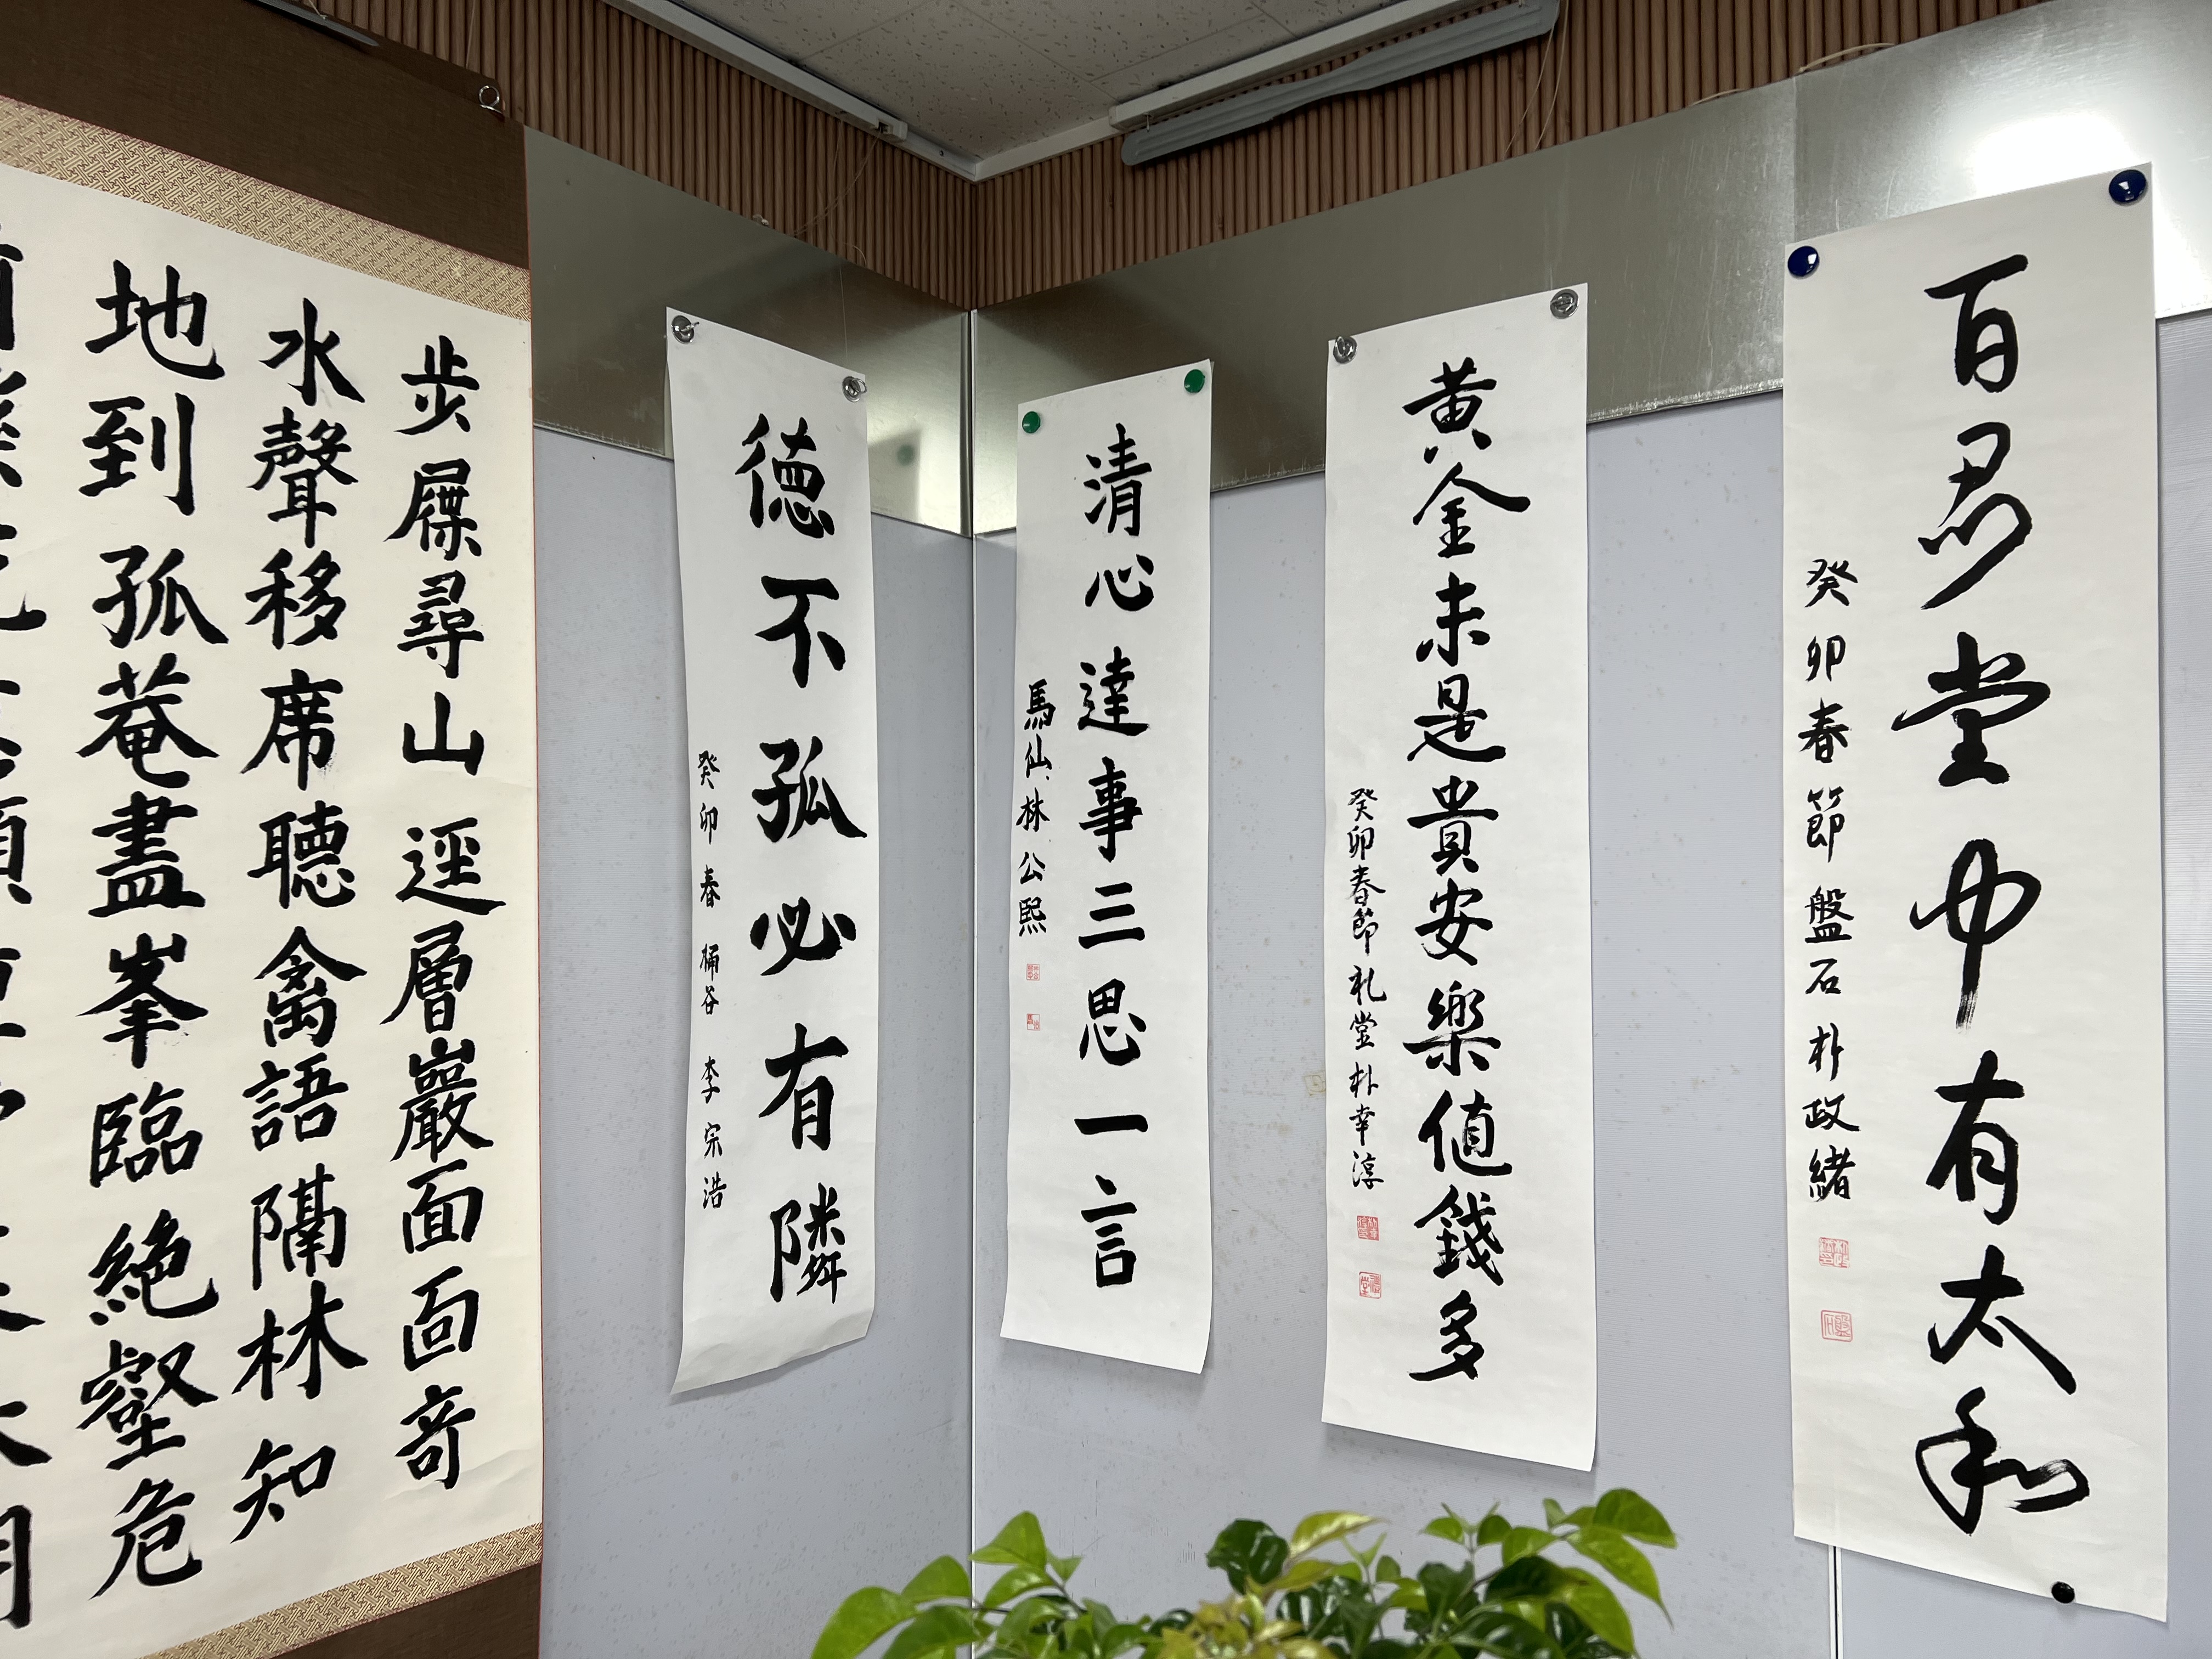 百忍堂中有太和
癸卯春節 盤石 朴政緖
黄金未是貴安樂値錢多
癸卯春節 礼堂 朴幸淳
清心達事三思一言
馬仙 林公熙
徳不孤必有隣
癸卯春 桶谷 李宗浩
步屧尋山逕層巖面面奇
水聲移席聽禽語隔林知
地到孤菴盡峯臨絶壑危